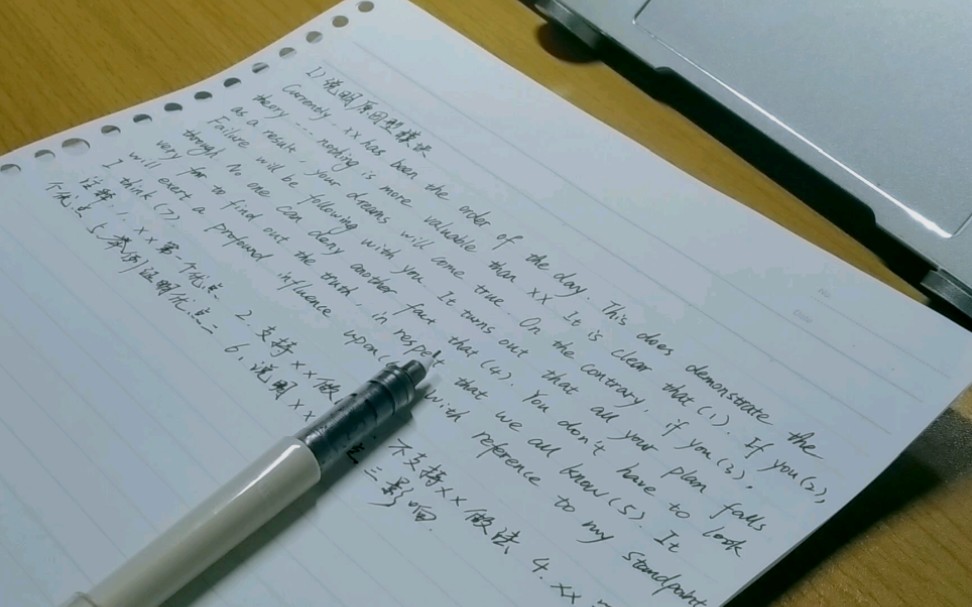 1) 说明原因型模块
Currently, xx has been the order of the day. This does demonstrate the
theory ... nothing is more valuable than xx It is clear that (1). If you (2),
as a result, your dreams will come true. On the contrary, if you (3).
Failure will be following with you. It turns out that all your plan falls
through. No one can deny another fact that (4). You don't have to look
very far to find out the truth, in respect that we all know (5). It
will exert a profound influence upon ( With reference to my standpoint
I think (7).
注释 1. xx第一个优点 2. 支持xx做 不支持xx做法 4. xx
优点 5. 举例说明优点二 6. 说明xx